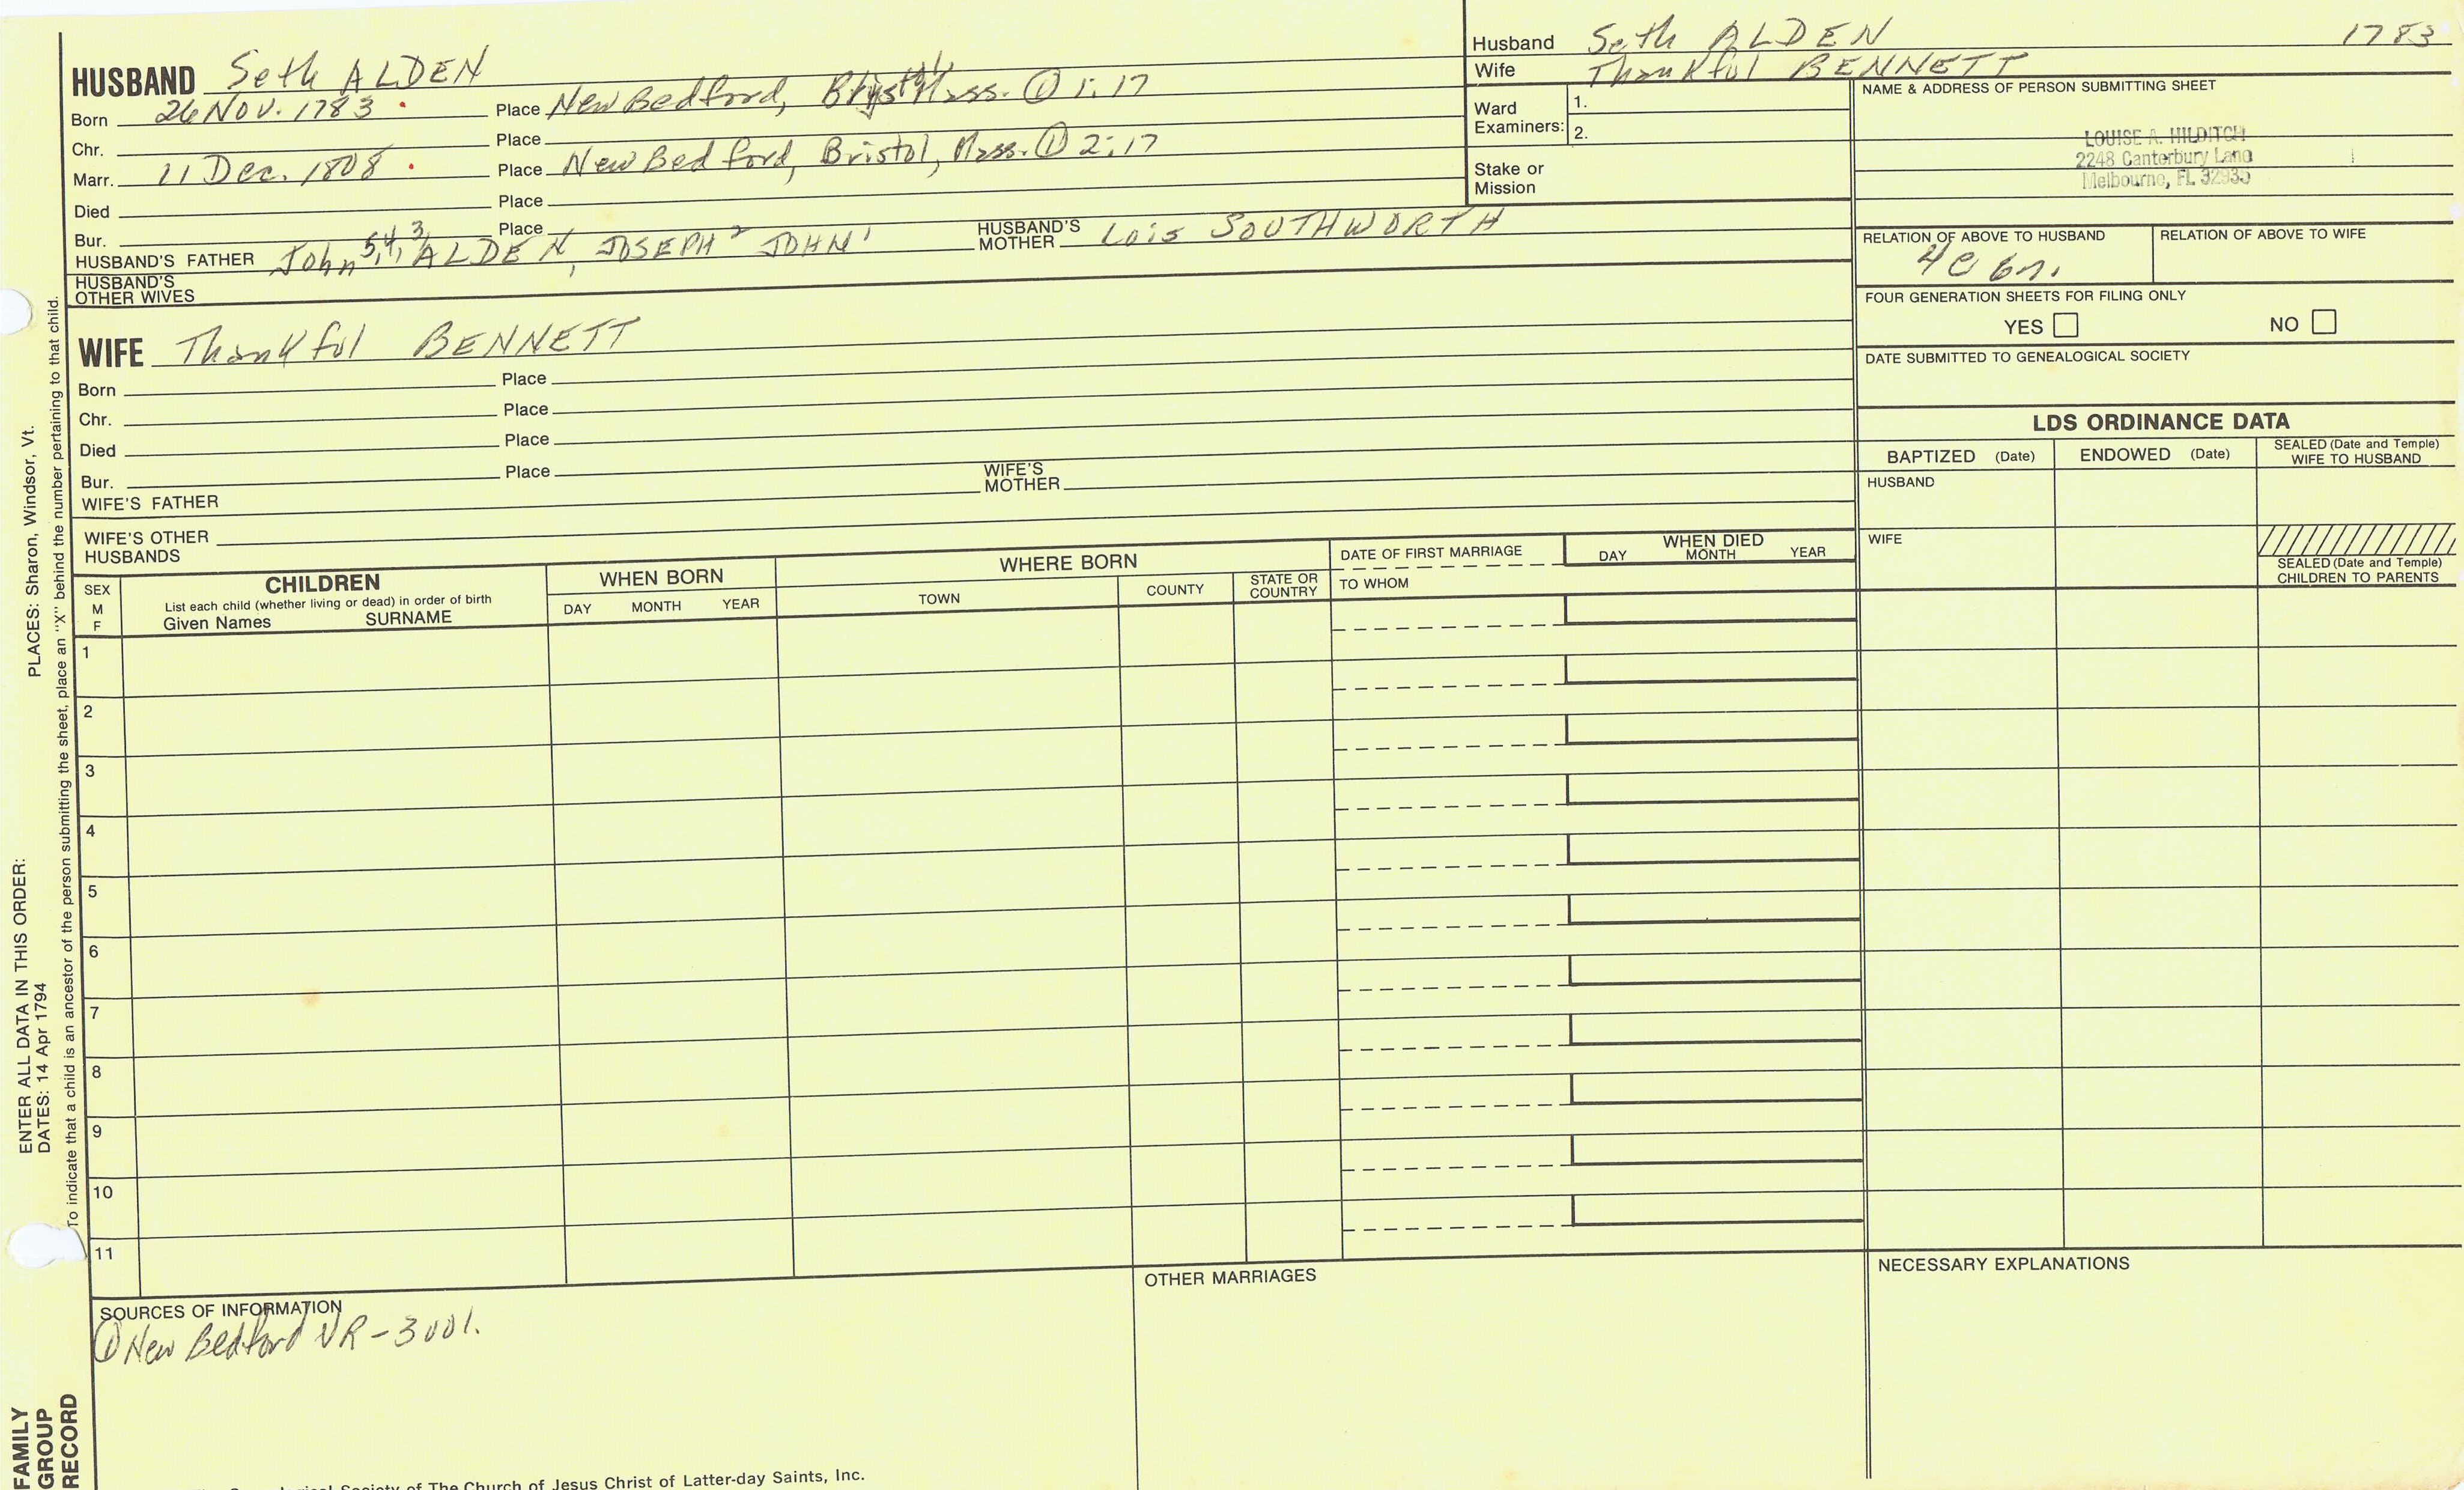 Husband Seth ALDEN 1783
Wife Thankful BENNETT
HUSBAND Seth ALDEN
Born 26 Nov. 1783 . Place New Bedford, Mass. ① 1:17
Chr. Place
Marr. 11 Dec. 1808 . Place New Bedford, Bristol, Mass. ① 2:17
Died Place
Bur. Place
HUSBAND'S FATHER John 5,4,3, ALDEN, JOSEPH 2 JOHN 1 HUSBAND'S MOTHER Lois SOUTHWORTH
HUSBAND'S OTHER WIVES
Ward Examiners: 1.
2.
Stake or Mission
NAME & ADDRESS OF PERSON SUBMITTING SHEET
LOUISE A. HILDITCH
2248 Canterbury Lane
Melbourne, FL 32935
RELATION OF ABOVE TO HUSBAND RELATION OF ABOVE TO WIFE
4C
FOUR GENERATION SHEETS FOR FILING ONLY
YES NO
DATE SUBMITTED TO GENEALOGICAL SOCIETY
WIFE Thankful BENNETT
Born Place
Chr. Place
Died Place
Bur. Place
WIFE'S FATHER WIFE'S MOTHER
WIFE'S OTHER HUSBANDS
LDS ORDINANCE DATA
BAPTIZED (Date) ENDOWED (Date) SEALED (Date and Temple) WIFE TO HUSBAND
HUSBAND
WIFE
SEALED (Date and Temple) CHILDREN TO PARENTS
SEX M F
CHILDREN
List each child (whether living or dead) in order of birth
Given Names SURNAME
WHEN BORN
DAY MONTH YEAR
WHERE BORN
TOWN COUNTY STATE OR COUNTRY
DATE OF FIRST MARRIAGE
TO WHOM
WHEN DIED
DAY MONTH YEAR
1
2
3
4
5
6
7
8
9
10
11
SOURCES OF INFORMATION
① New Bedford VR - 3001.
OTHER MARRIAGES
NECESSARY EXPLANATIONS
Society of The Church of Jesus Christ of Latter-day Saints, Inc.
FAMILY
GROUP
RECORD
ENTER ALL DATA IN THIS ORDER:
DATES: 14 Apr 1794 PLACES: Sharon, Windsor, Vt.
To indicate that a child is an ancestor of the person submitting the sheet, place an "X" behind the number pertaining to that child.